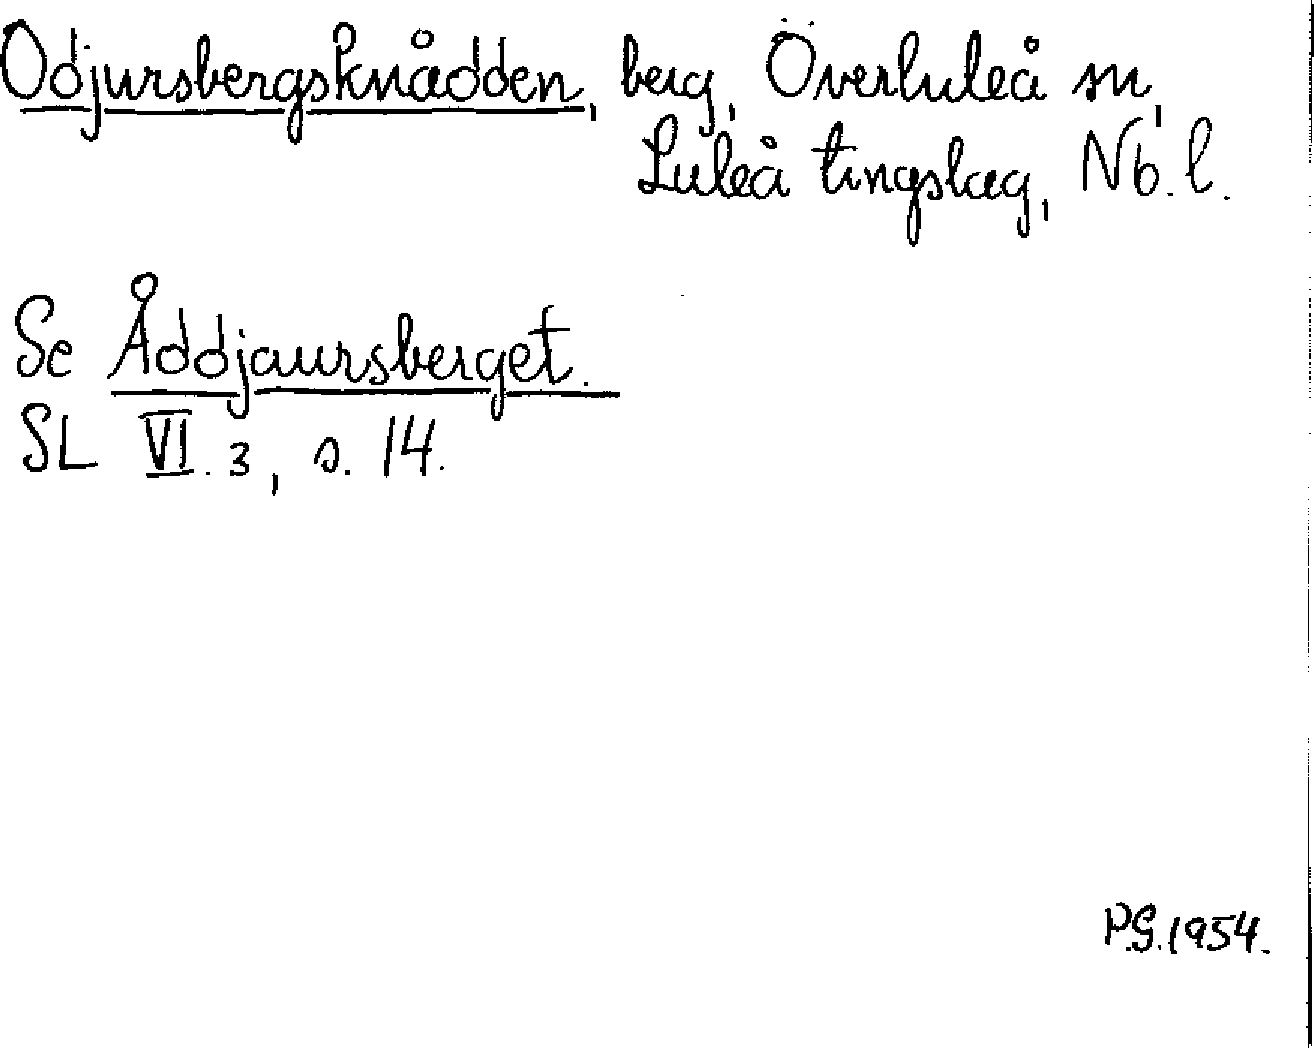 Odjursbergsknådden, berg, Överluleå sn,
Luleå tingslag, Nb. l.
Se Åddjaursberget.
SL VI. 3, s. 14.
P.G. 1954.